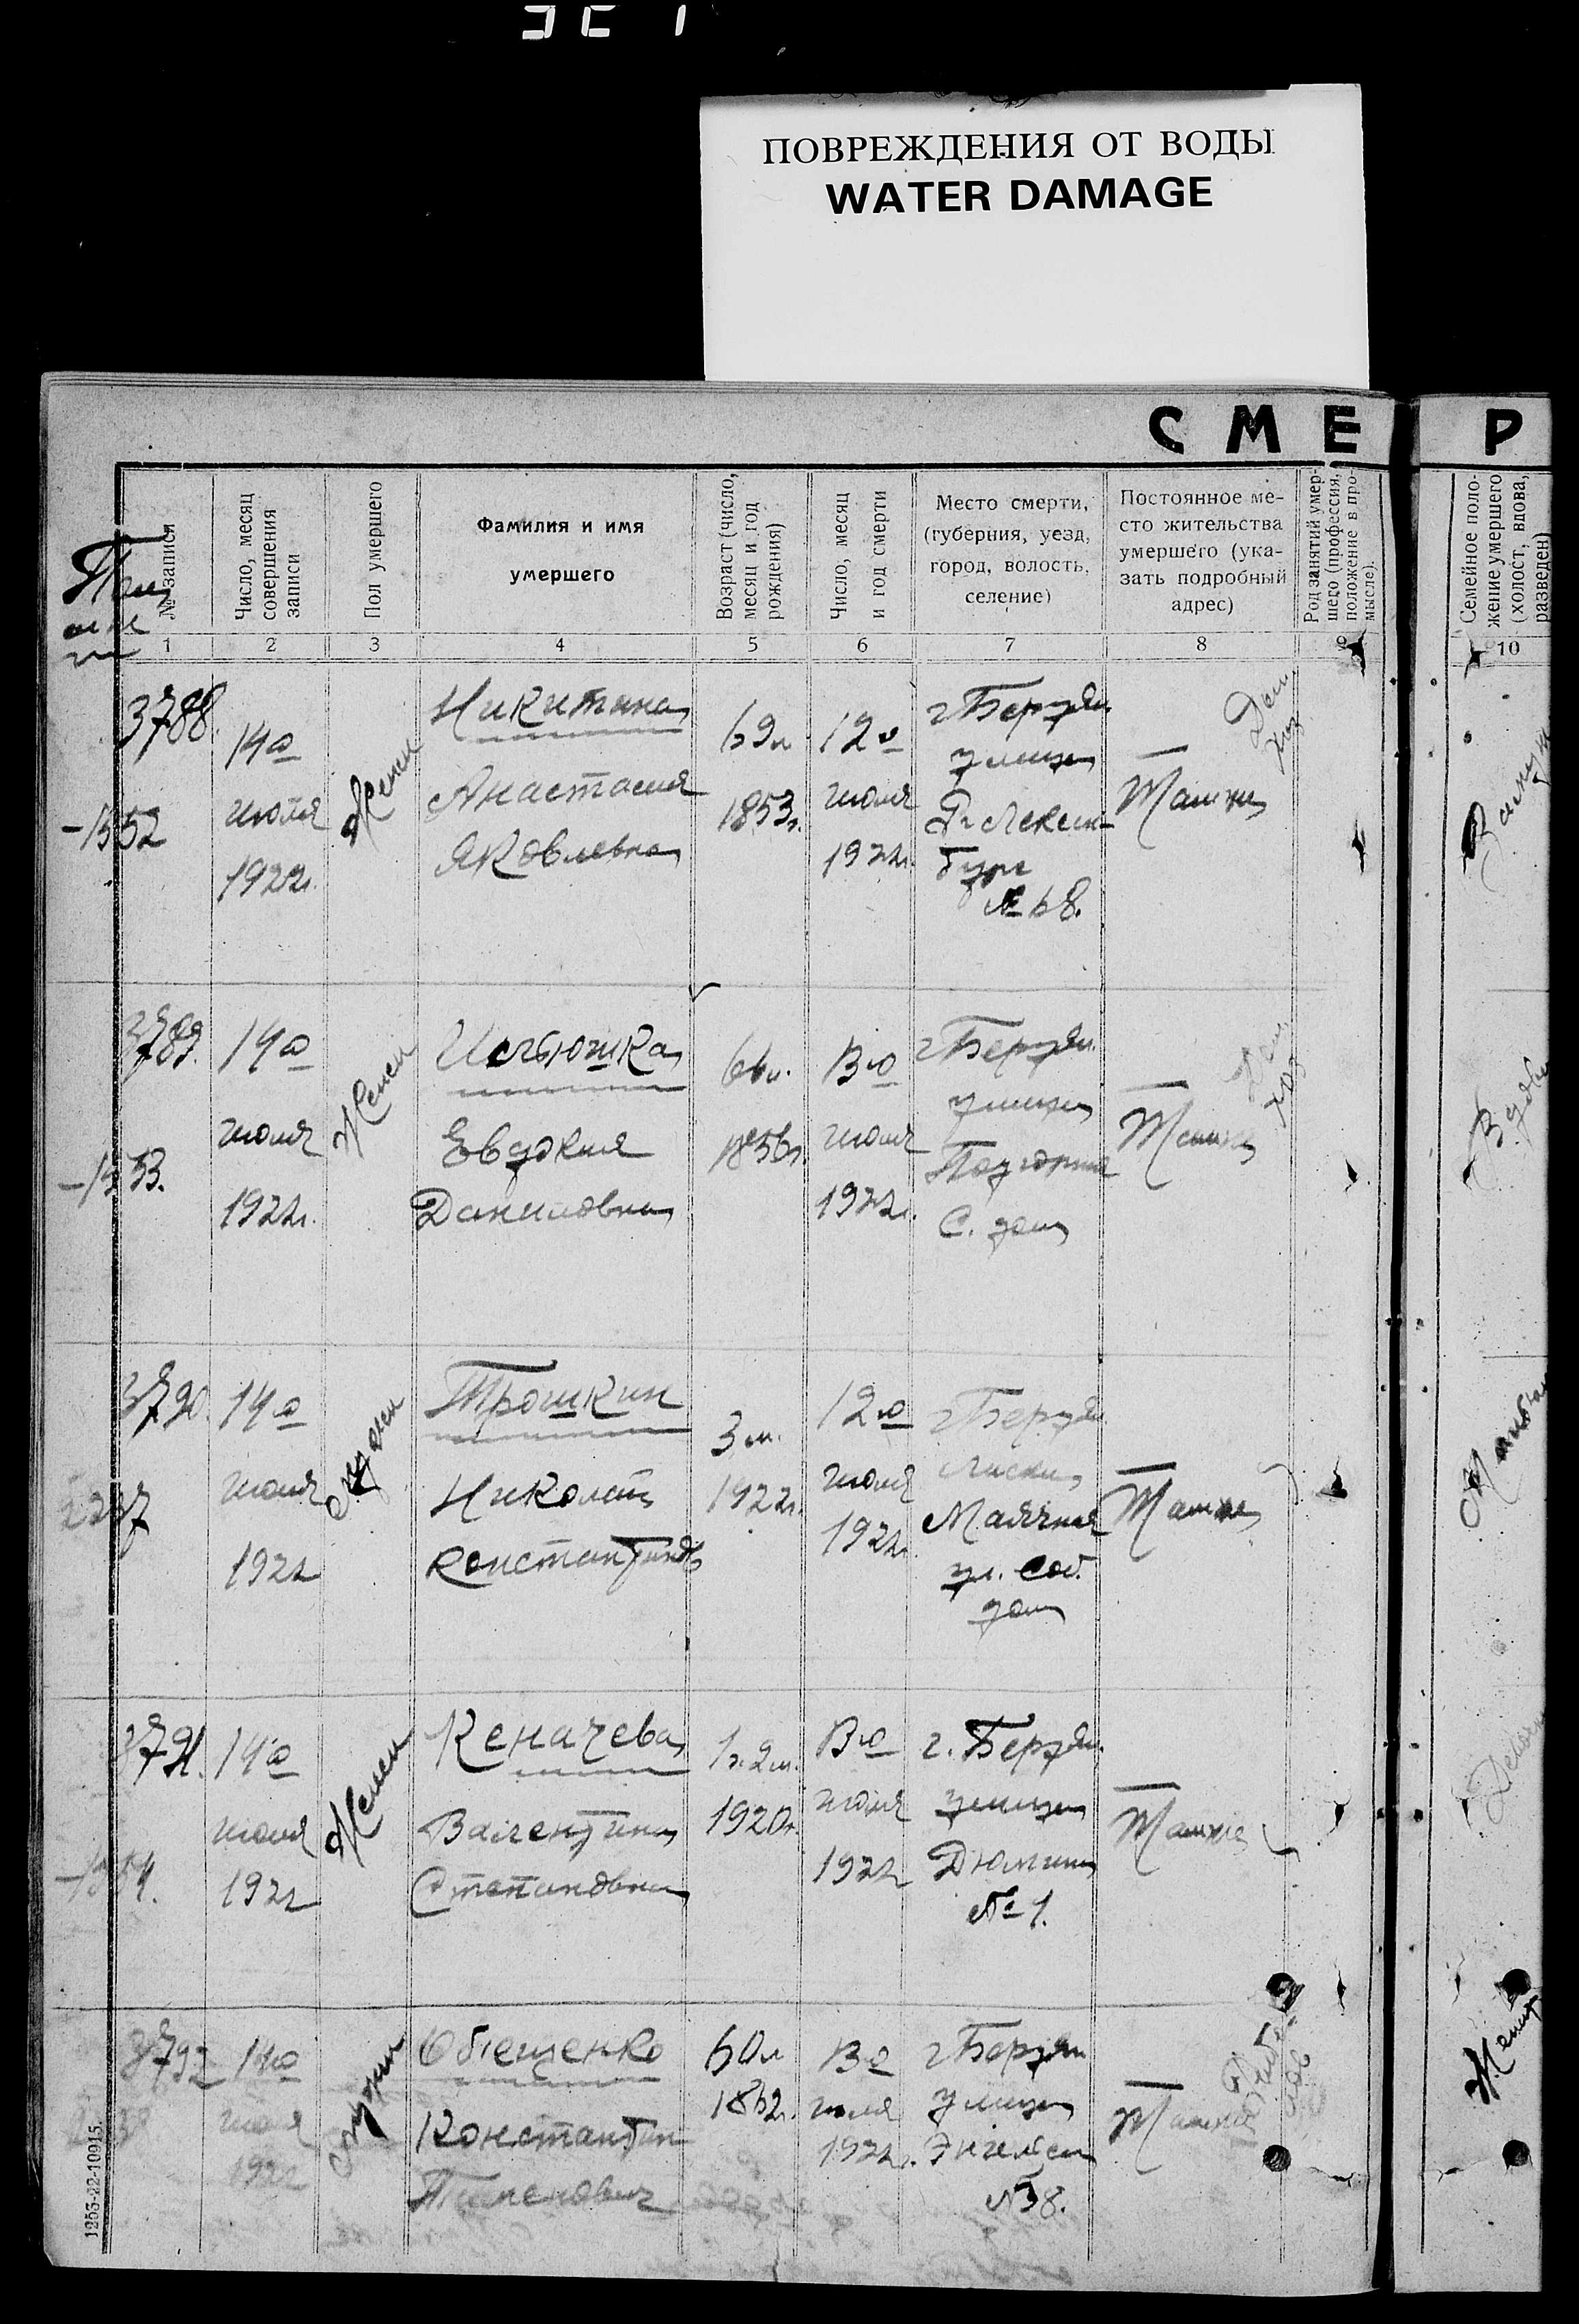 ПОВРЕЖДЕНИЯ ОТ ВОДЫ
WATER DAMAGE
С М Е Р
№ записи
Число, месяц совершения записи
Пол умершего
Фамилия и имя умершего
Возраст (число, месяц и год рождения)
Число, месяц и год смерти
Место смерти, (губерния, уезд, город, волость, селение)
Постоянное место жительства умершего (указать подробный адрес)
Род занятий умершего (профессия, положение в промысле).
Семейное положение умершего (холост, вдова, разведен)
1 2 3 4 5 6 7 8 9 10
3788
14го
июля
1922г.
-1552
Женск
Никитина
Анастасия
Яковлевна
69л
1853г.
12го
июля
1922г.
г Бердян
улица
№ 68.
Дом
хоз
3789.
14го
июля
1922г.
-1553.
Женск
Евдокия
Даниловна
66л.
1856г.
13го
июля
1922г.
г Бердян.
улица
С. дом
Дом
хоз
Вдова
3790.
14го
июля
1922
Мужск
Трошкин
Николай
Константинов
3м.
1922г.
12го
июля
1922г.
г Бердян
Лиски
Маячная
ул. Соб.
дом
3791.
14го
июля
1922
-1554.
Женск
Кеначева
Валентина
Степановна
1920г.
13го
июля
1922
г. Бердян.
улица
№ 1.
3792
14го
июля
1922
Константин
60л
1862г.
13го
июля
1922г.
г Бердян
улица
Энгельса
№38.
Женат
1255-22-10915.